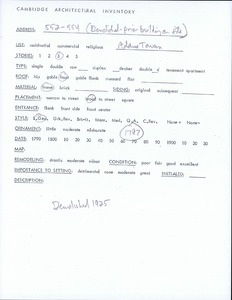 CAMBRIDGE ARCHITECTURAL INVENTORY
ADDRESS: 552-554 (Demolished - prior building on site)
USE: residential commercial religious Adams Tavern
STORIES: 1 2 3 4 5
TYPE: single double row duplex double 3 apartment
ROOF: hip gable flank mansard flat
MATERIAL: wood brick SIDING: original
PLACEMENT: narrow to street broad to street square
ENTRANCE: flank front side front center
STYLE: Q.A. C.Rev. None None
ORNAMENT: little moderate elaborate
DATE: 1790 1800 10 20 30 40 50 60 70 80 90 1900 10 20 30 1797
MAP:
REMODELING: drastic moderate minor CONDITION: poor fair good excellent
IMPORTANCE TO SETTING: detrimental none moderate great INITIALED:
DESCRIPTION:
Demolished 1925